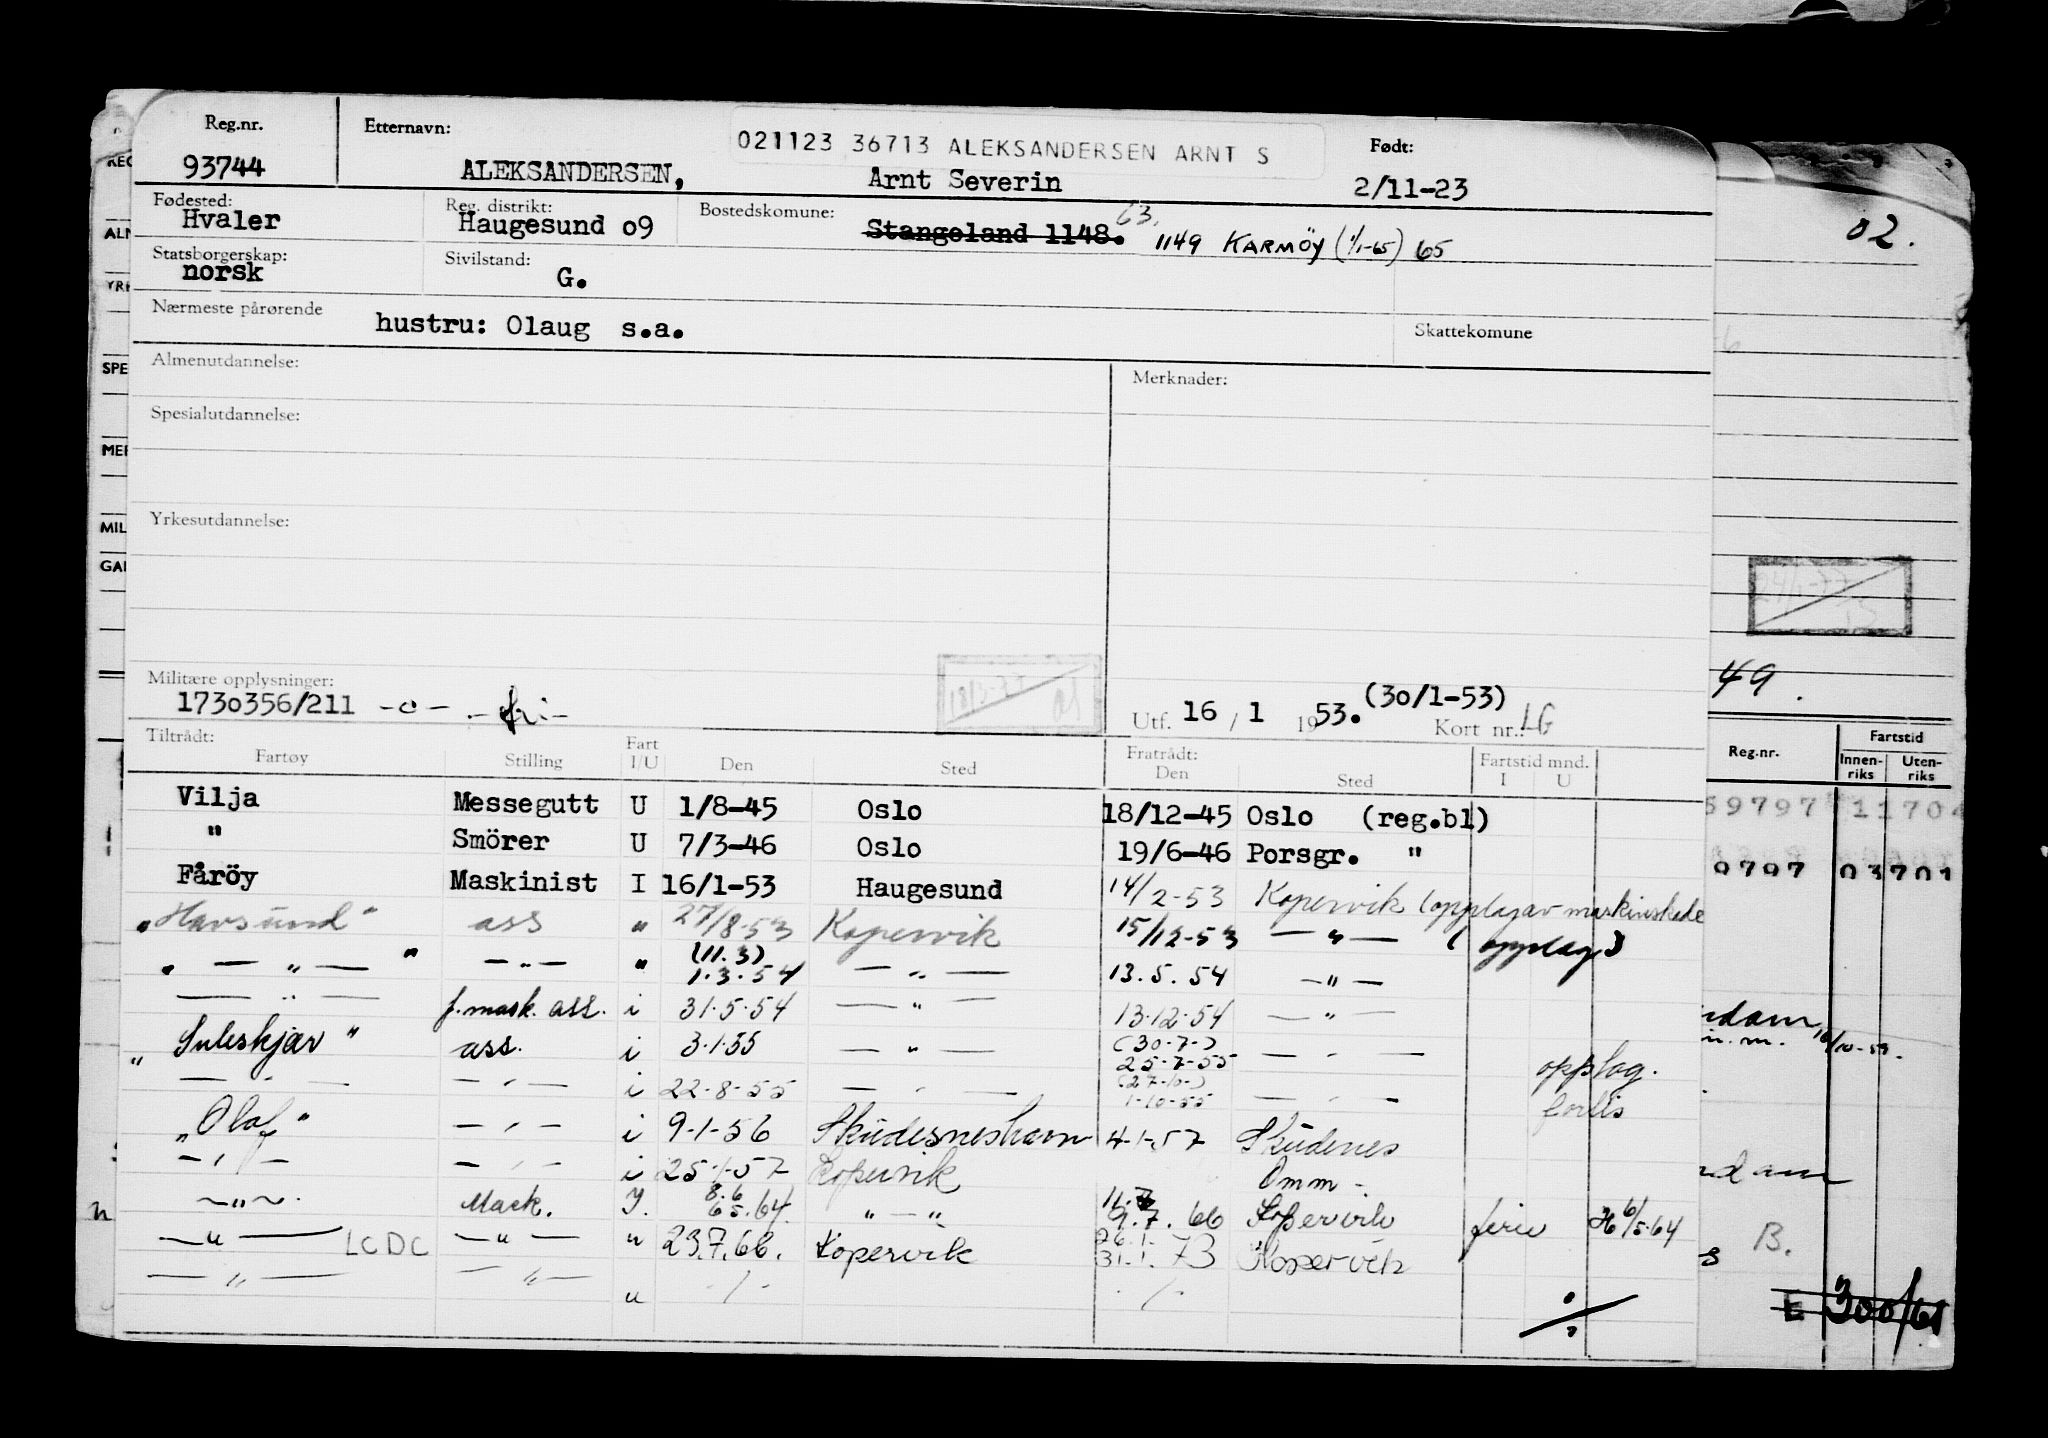 Reg.nr. Etternavn: 021123 36713 ALEKSANDERSEN ARNT S Født:
93744 ALEKSANDERSEN, Arnt Severin 2/11-23
Fødested: Reg. distrikt: Bostedskomune: 63.
Hvaler Haugesund o9 Stangeland 1148. 1149 KARMÖY (1/1-65) 65
Statsborgerskap: Sivilstand:
norsk G.
Nærmeste pårørende hustru: Olaug s.a. Skattekomune
Almenutdannelse: Merknader:
Spesialutdannelse:
Yrkesutdannelse:
Militære opplysninger:
1730356/211 -o- -fri-
Utf. 16 / 1 1953. (30/1-53) Kort nr.: LG
Tiltrådt: Fratrådt:
Fartøy Stilling Fart I/U Den Sted Den Sted Fartstid mnd. I U
Vilja Messegutt U 1/8-45 Oslo 18/12-45 Oslo (reg.bl)
" Smörer U 7/3-46 Oslo 19/6-46 Porsgr. "
Fåröy Maskinist I 16/1-53 Haugesund 14/2-53 Kopervik (opplag av maskinskade
"Havsund" ass " 27/8-53 Kopervik 15/12-53 — " — (opplag)
" — " — " — " — " (11.3) 1.3.54 — " — 13.5.54 — " —
— " — f.mask. ass. i 31.5.54 — " — 13.12.54 — " —
"Suleskjær" ass. i 3.1.55 — " — (30-7-) 25-7-55 — " — opplag.
— " — — " — i 22-8-55 — " — (27-10-) 1-10-55 — " — forlis
"Olaf" — " — i 9-1-56 Skudesneshavn 4-1-57 Skudenes
— " — — " — i 25-1-57 Kopervik Omm -.
— " — Mask. 8.6 65.64. " — " 11.7 9.7.66 Kopervik ferie 6/5-64
— " — LCDC — " — " 23.7.66. Kopervik 26.1. 31.1.73 Kopervik
— " — — " — " -/- -/-
02.
49.
Reg.nr. Fartstid
Innenriks Utenriks
59797 11704
9797 03701
B.
E 300/61